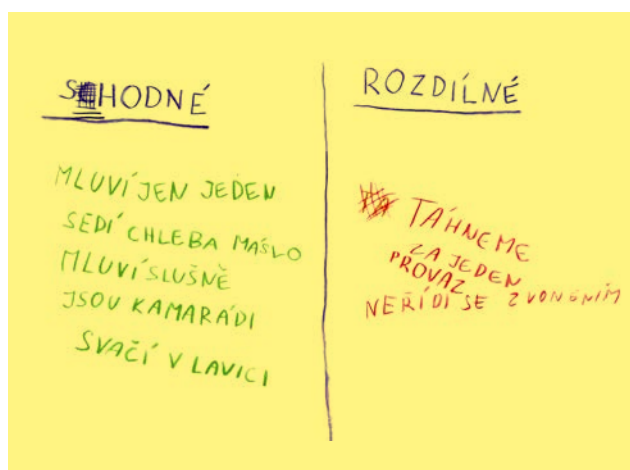 SHODNÉ
MLUVÍ JEN JEDEN
SEDÍ CHLEBA MÁSLO
MLUVÍ SLUŠNĚ
JSOU KAMARÁDI
SVAČÍ V LAVICI
ROZDÍLNÉ
TÁHNEME
ZA JEDEN
PROVAZ
NEŘÍDÍ SE ZVONĚNÍM